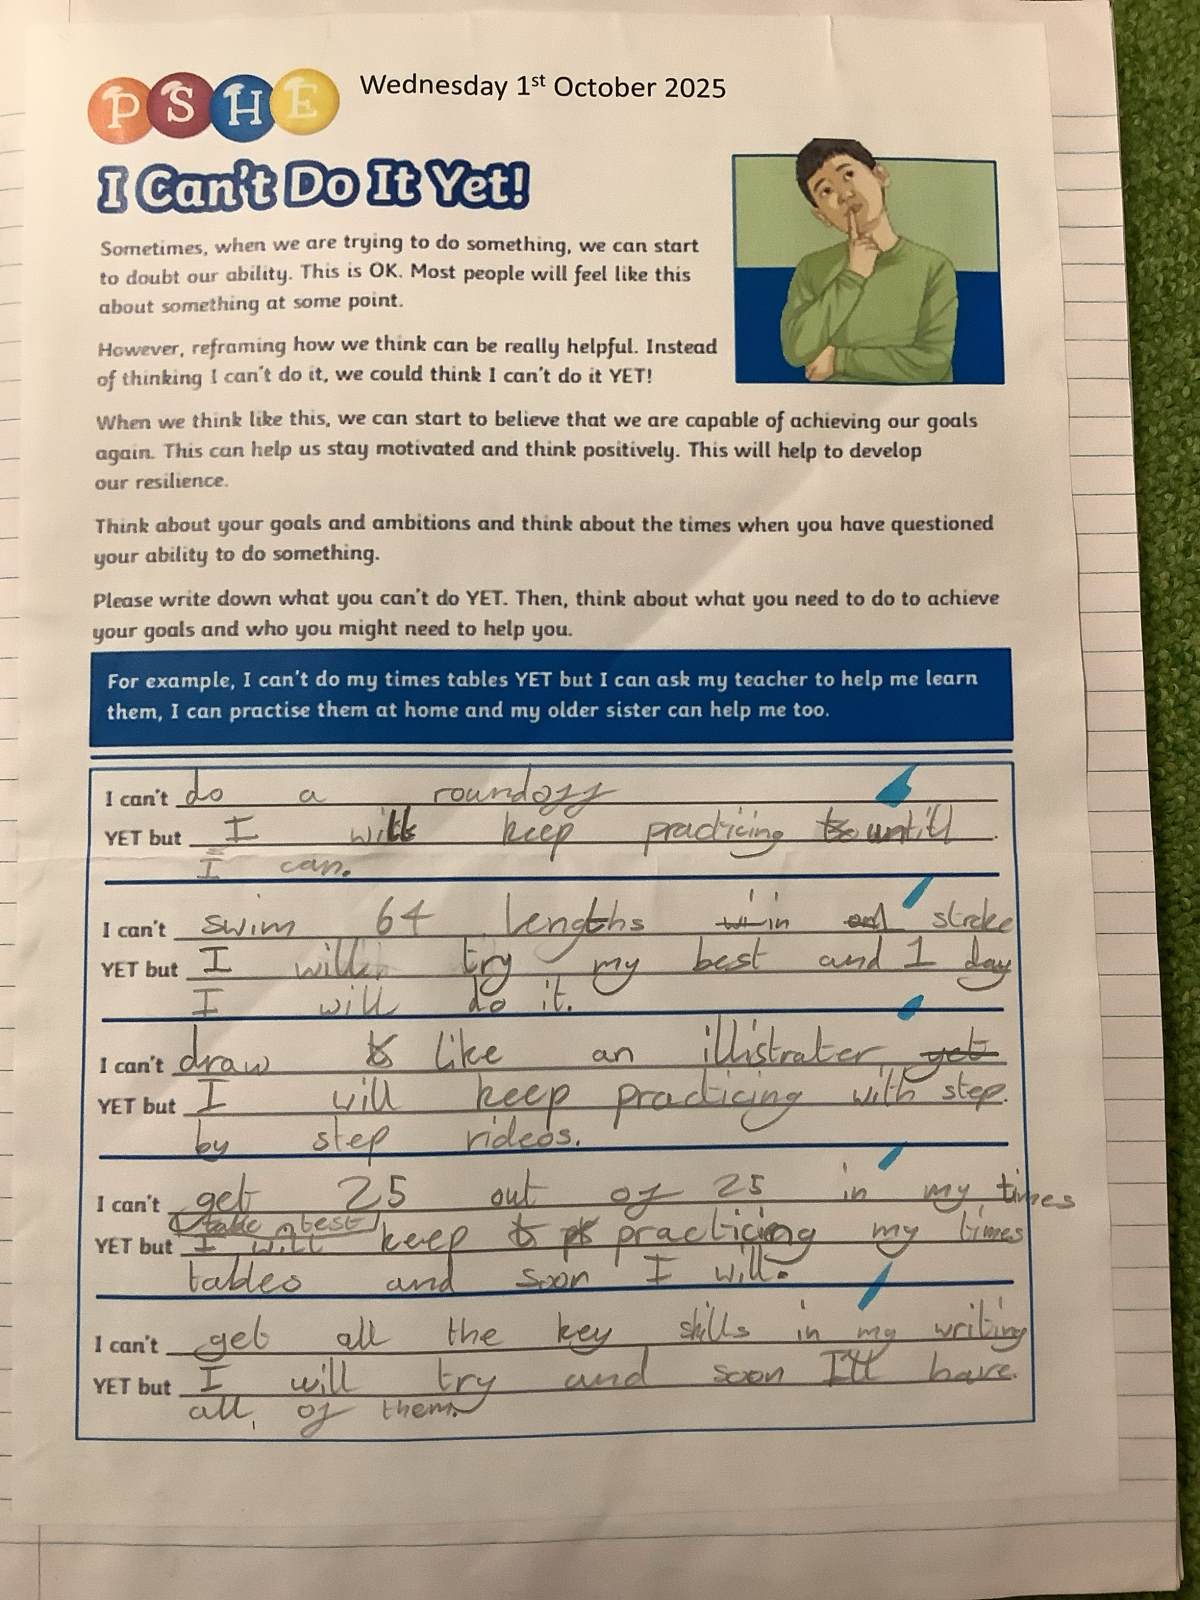 PSHE Wednesday 1st October 2025
I Can't Do It Yet!
Sometimes, when we are trying to do something, we can start
to doubt our ability. This is OK. Most people will feel like this
about something at some point.
However, reframing how we think can be really helpful. Instead
of thinking I can't do it, we could think I can't do it YET!
When we think like this, we can start to believe that we are capable of achieving our goals
again. This can help us stay motivated and think positively. This will help to develop
our resilience.
Think about your goals and ambitions and think about the times when you have questioned
your ability to do something.
Please write down what you can't do YET. Then, think about what you need to do to achieve
your goals and who you might need to help you.
For example, I can't do my times tables YET but I can ask my teacher to help me learn
them, I can practise them at home and my older sister can help me too.
I can't do a roundoff
YET but I will keep practicing untill
I can.
I can't swim 64 lengths in stroke
YET but I will try my best and 1 day
I will do it.
I can't draw like an illistrater yet
YET but I will keep practicing with step
by step videos.
I can't get 25 out of 25 in my times
table test
YET but I will keep practicing my times
tables and soon I will.
I can't get all the key skills in my writing
YET but I will try and soon I'll have
all of them.